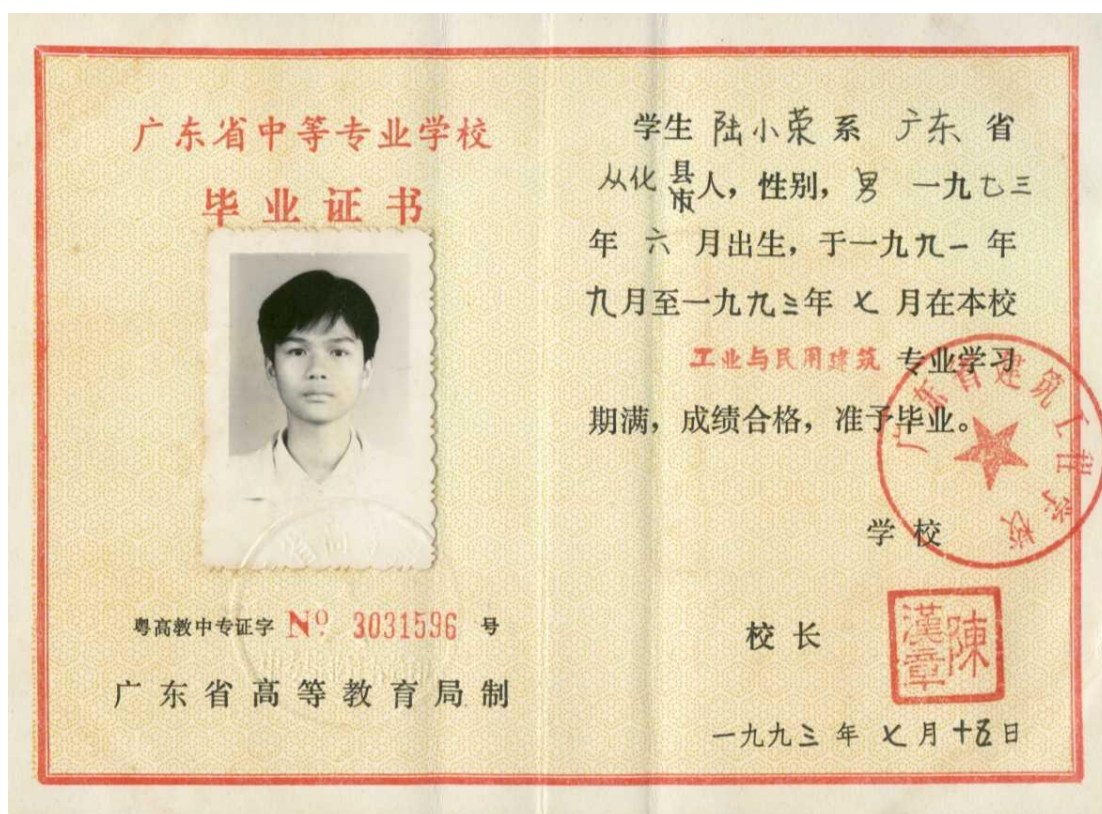 广东省中等专业学校
毕业证书
粤高教中专证字 Nº 3031596 号
广东省高等教育局制
学生 陆小荣 系 广东 省
从化 县市人，性别，男 一九七三
年 六 月出生，于一九九一 年
九月至一九九三年 七 月在本校
工业与民用建筑 专业学习
期满，成绩合格，准予毕业。
广东省建筑工程学校
学校
校长
陳漢章
一九九三年 七月十五日